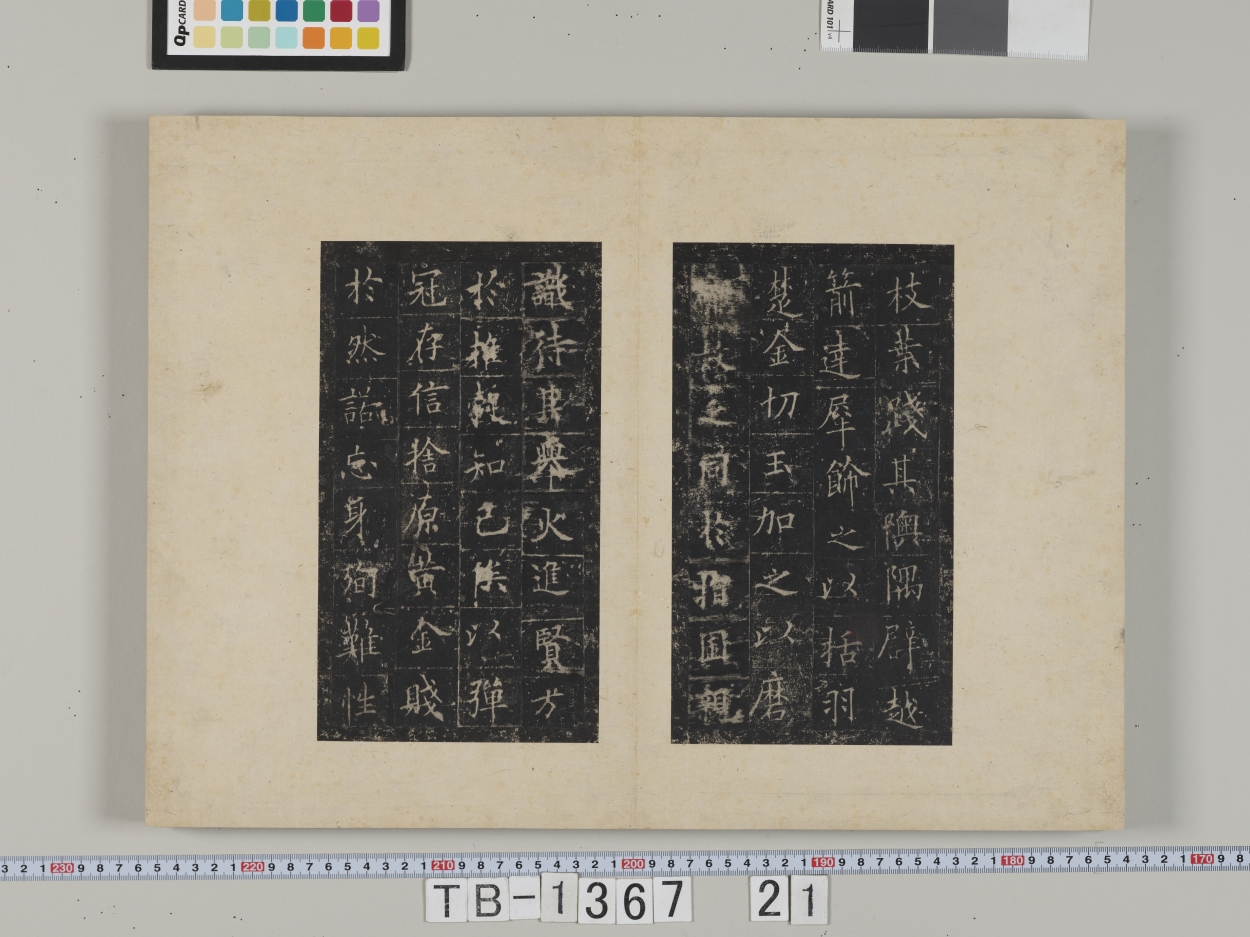 枝葉踐其隩隅辟越
箭達犀飾之以括羽
楚金切玉加之以磨
之同於指囷親
識待其爨火進賢方
於推轂知己俟以彈
冠存信捨原黄金賤
於然諾忘身殉難性
QpCARD
CARD 101 v4
3 2 1 230 9 8 7 6 5 4 3 2 1 220 9 8 7 6 5 4 3 2 1 210 9 8 7 6 5 4 3 2 1 200 9 8 7 6 5 4 3 2 1 190 9 8 7 6 5 4 3 2 1 180 9 8 7 6 5 4 3 2 1 170 9 8
TB-1367 21